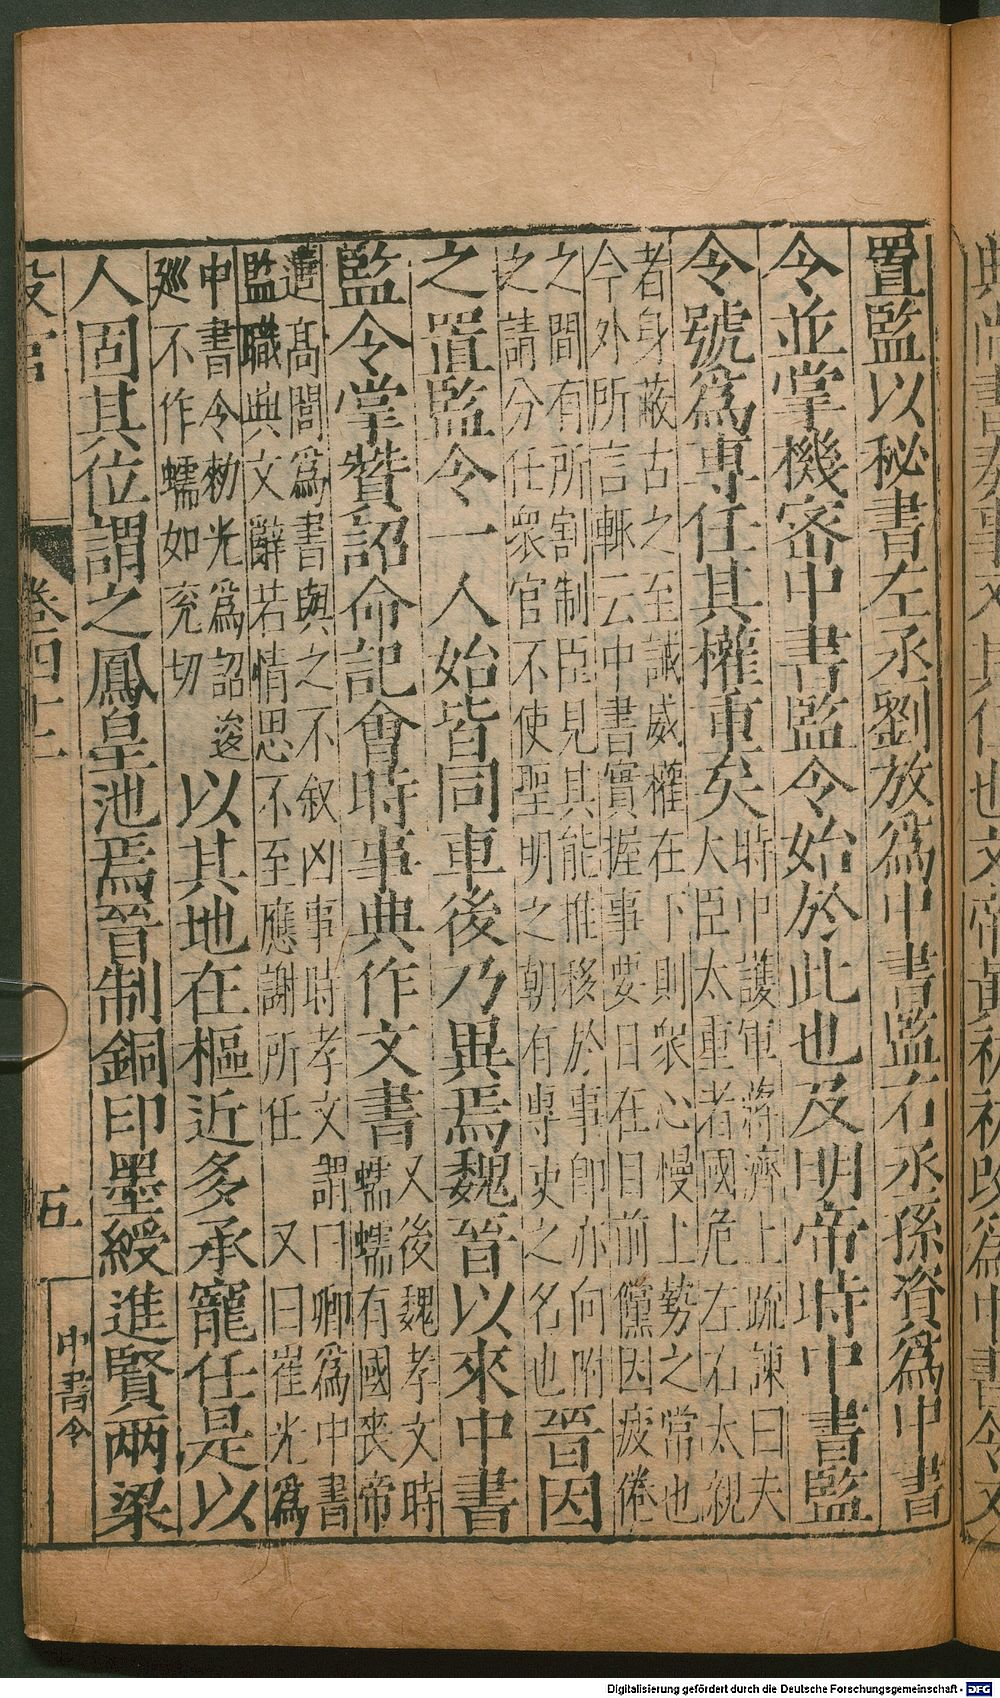 置監以秘書左丞劉放爲中書監右丞孫資爲中書
令並掌機密中書監令始於此也及明帝時中書監
令號爲專任其權重矣
時中護軍蔣濟上疏諫曰夫
大臣太重者國危左右太親
者身蔽古之至誡威權在下則衆心慢上勢之常也
今外所言輒云中書實握事要日在目前儻因疲倦
之間有所割制臣見其能推移於事卽亦向附
之請分任衆官不使聖明之朝有專吏之名也
晉因
之置監令一人始皆同車後乃異焉魏晉以來中書
監令掌贊詔命記會時事典作文書
又後魏孝文時
蠕蠕有國喪帝
遣高閭爲書與之不叙凶事時孝文謂曰卿爲中書
監職典文辭若情思不至應謝所任 又曰崔光爲
中書令勑光爲詔逡
廵不作蠕如兖切
以其地在樞近多承寵任是以
人固其位謂之鳳皇池焉晉制銅印墨綬進賢兩梁
卷四十二
五
中書令
Digitalisierung gefördert durch die Deutsche Forschungsgemeinschaft - DFG